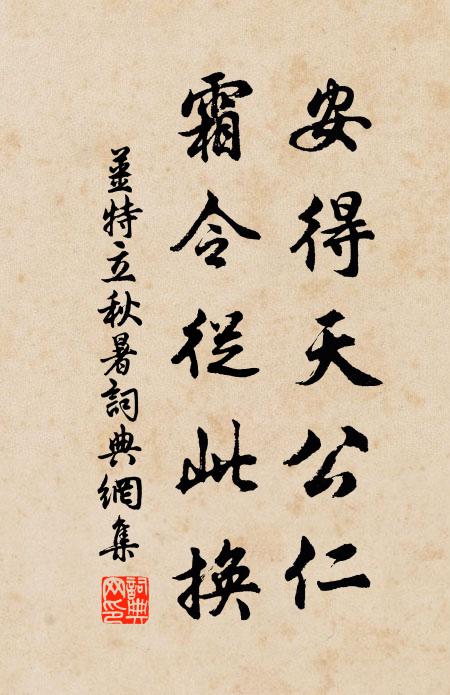 安得天公仁
霜令從此換
姜特立秋暑詞典網集
詞典网印